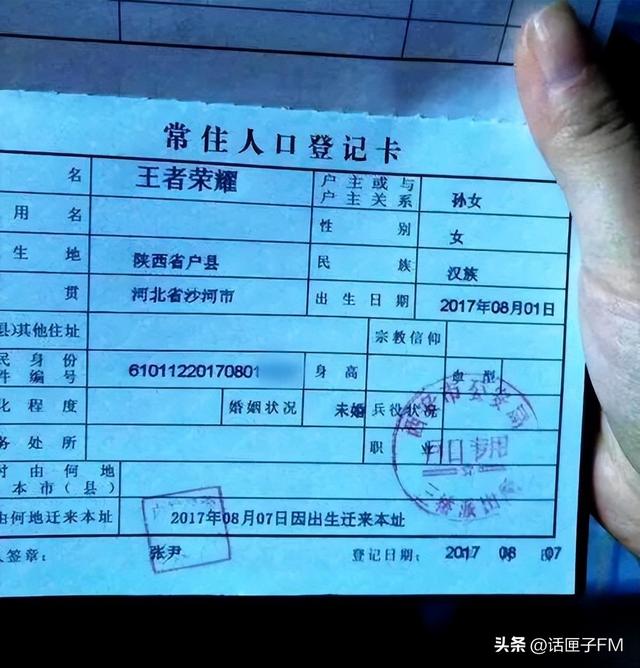 常住人口登记卡
名 王者荣耀 户主或与户主关系 孙女
用名 性别 女
生地 陕西省户县 民族 汉族
贯 河北省沙河市 出生日期 2017年08月01日
县)其他住址 宗教信仰
民身份
件编号 61011220170801 身高 血型
化程度 婚姻状况 未婚 兵役状况
务处所 职业
时由何地
本市(县)
何地迁来本址 2017年08月07日因出生迁来本址
人签章: 张尹 登记日期: 2017 08 07
户口专用
头条 @话匣子FM